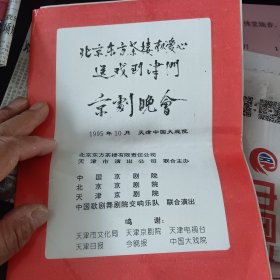 北京东方茶楼献爱心
送戏到津门
京剧晚会
1995年10月 天津中国大戏院
北京东方茶楼有限责任公司
天津市演出公司 联合主办
中国京剧院
北京京剧院
天津京剧院
中国歌剧舞剧院交响乐队 联合演出
鸣谢：
天津市文化局 天津京剧院 天津电视台
天津日报 今晚报 中国大戏院